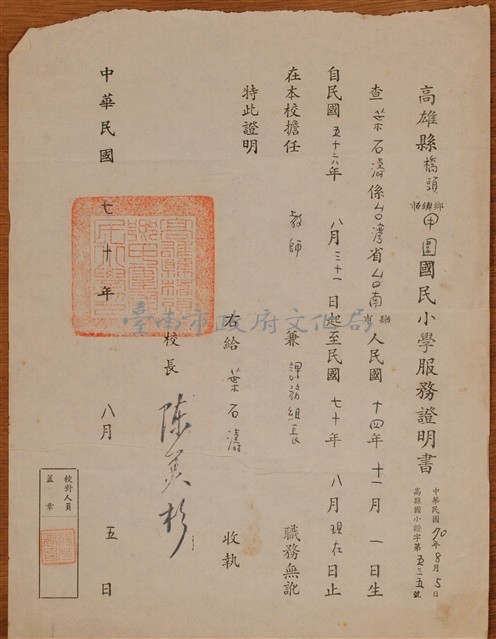 高雄縣橋頭鄉鎮市甲圍國民小學服務證明書
中華民國70年8月5日
高縣國小證字第五二五號
查葉石濤係台灣省台南縣市人民國十四年十一月一日生
自民國五十六年八月三十一日起至民國七十年八月現在日止
在本校擔任教師兼課務組長職務無訛
特此證明
右給葉石濤收執
校長陳
中華民國七十年八月五日
校對人員
蓋章
臺南市政府文化局